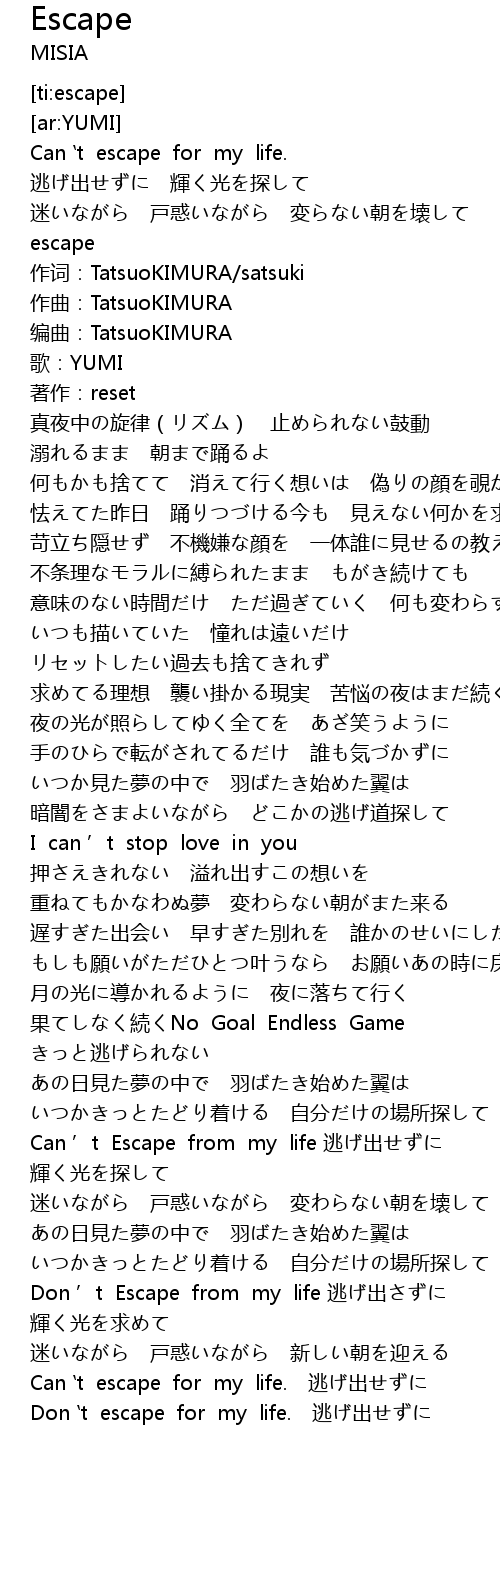 Escape
MISIA
[ti:escape]
[ar:YUMI]
Can‘t escape for my life.
逃げ出せずに　輝く光を探して
迷いながら　戸惑いながら　変らない朝を壊して
escape
作词：TatsuoKIMURA/satsuki
作曲：TatsuoKIMURA
编曲：TatsuoKIMURA
歌：YUMI
著作：reset
真夜中の旋律（リズム）　止められない鼓動
溺れるまま　朝まで踊るよ
何もかも捨てて　消えて行く想いは　偽りの顔を覗か
怯えてた昨日　踊りつづける今も　見えない何かを求
苛立ち隠せず　不機嫌な顔を　一体誰に見せるの教え
不条理なモラルに縛られたまま　もがき続けても
意味のない時間だけ　ただ過ぎていく　何も変わらず
いつも描いていた　憧れは遠いだけ
リセットしたい過去も捨てきれず
求めてる理想　襲い掛かる現実　苦悩の夜はまだ続く
夜の光が照らしてゆく全てを　あざ笑うように
手のひらで転がされてるだけ　誰も気づかずに
いつか見た夢の中で　羽ばたき始めた翼は
暗闇をさまよいながら　どこかの逃げ道探して
I can’t stop love in you
押さえきれない　溢れ出すこの想いを
重ねてもかなわぬ夢　変わらない朝がまた来る
遅すぎた出会い　早すぎた別れを　誰かのせいにした
もしも願いがただひとつ叶うなら　お願いあの時に戻
月の光に導かれるように　夜に落ちて行く
果てしなく続くNo Goal Endless Game
きっと逃げられない
あの日見た夢の中で　羽ばたき始めた翼は
いつかきっとたどり着ける　自分だけの場所探して
Can’t Escape from my life 逃げ出せずに
輝く光を探して
迷いながら　戸惑いながら　変わらない朝を壊して
あの日見た夢の中で　羽ばたき始めた翼は
いつかきっとたどり着ける　自分だけの場所探して
Don’t Escape from my life 逃げ出さずに
輝く光を求めて
迷いながら　戸惑いながら　新しい朝を迎える
Can‘t escape for my life.　逃げ出せずに
Don‘t escape for my life.　逃げ出せずに